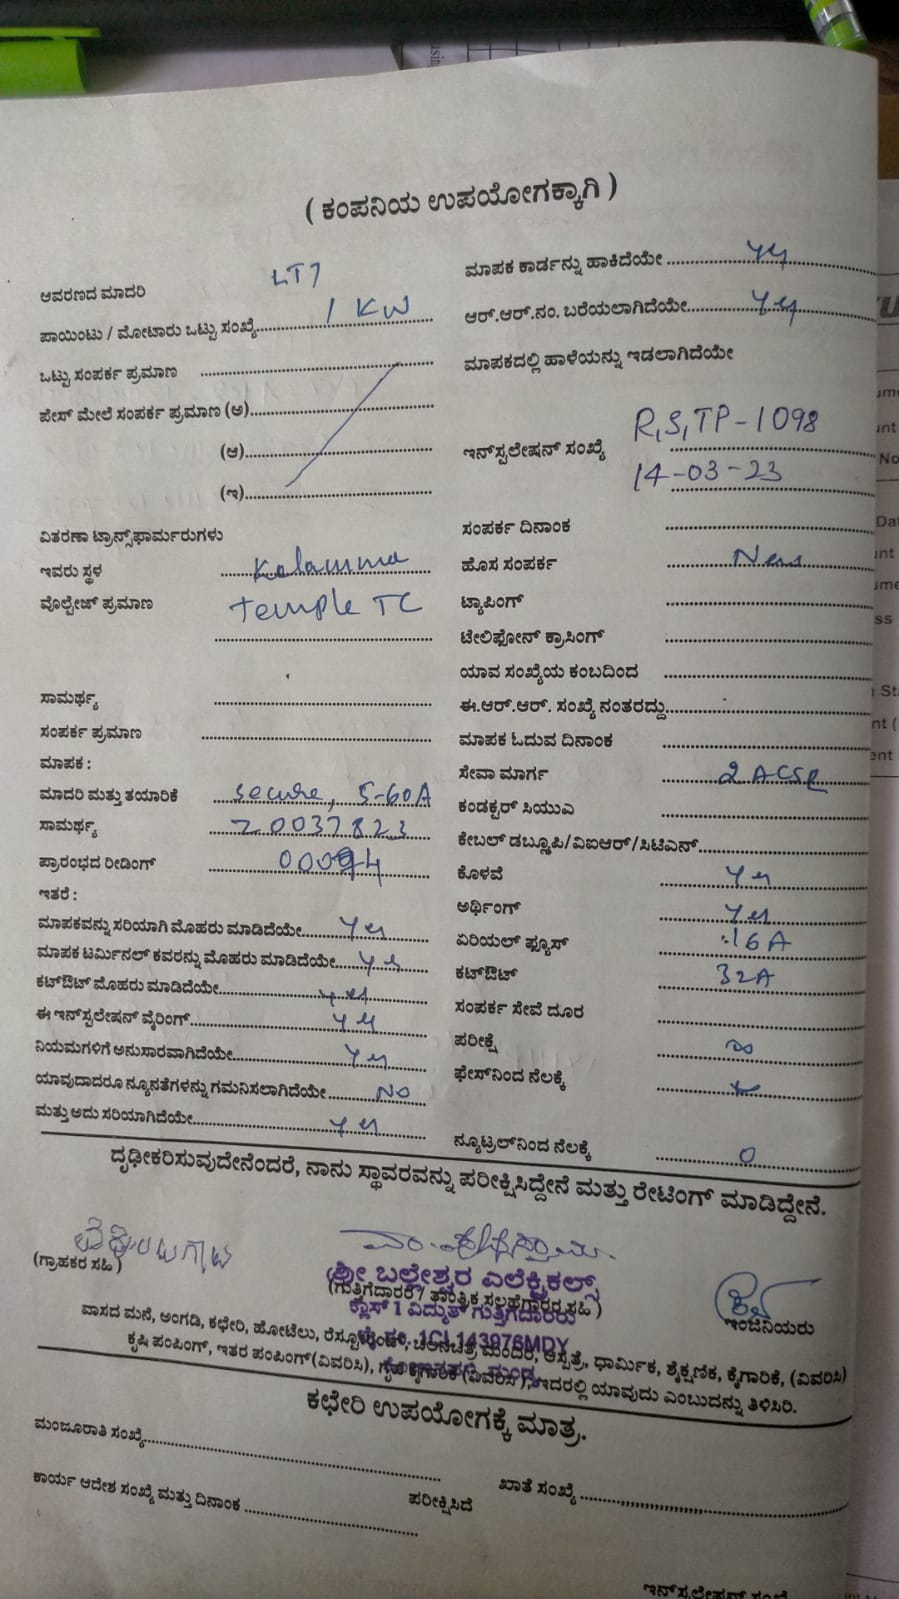 ( ಕಂಪನಿಯ ಉಪಯೋಗಕ್ಕಾಗಿ )
ಆವರಣದ ಮಾದರಿ LT7
ಪಾಯಿಂಟು / ಮೋಟಾರು ಒಟ್ಟು ಸಂಖ್ಯೆ 1 KW
ಒಟ್ಟು ಸಂಪರ್ಕ ಪ್ರಮಾಣ
ಪೇಸ್ ಮೇಲೆ ಸಂಪರ್ಕ ಪ್ರಮಾಣ (ಅ)
(ಆ)
(ಇ)
ವಿತರಣಾ ಟ್ರಾನ್ಸ್‌ಫಾರ್ಮರುಗಳು
ಇವರು ಸ್ಥಳ Kalamma
ವೊಲ್ಟೇಜ್ ಪ್ರಮಾಣ temple TC
ಸಾಮರ್ಥ್ಯ
ಸಂಪರ್ಕ ಪ್ರಮಾಣ
ಮಾಪಕ :
ಮಾದರಿ ಮತ್ತು ತಯಾರಿಕೆ secure, 5-60A
ಸಾಮರ್ಥ್ಯ 20037823
ಪ್ರಾರಂಭದ ರೀಡಿಂಗ್
ಇತರೆ :
ಮಾಪಕವನ್ನು ಸರಿಯಾಗಿ ಮೊಹರು ಮಾಡಿದೆಯೇ yes
ಮಾಪಕ ಟರ್ಮಿನಲ್ ಕವರನ್ನು ಮೊಹರು ಮಾಡಿದೆಯೇ yes
ಕಟ್‌ಔಟ್ ಮೊಹರು ಮಾಡಿದೆಯೇ yes
ಈ ಇನ್‌ಸ್ಟಲೇಷನ್ ವೈರಿಂಗ್ yes
ನಿಯಮಗಳಿಗೆ ಅನುಸಾರವಾಗಿದೆಯೇ yes
ಯಾವುದಾದರೂ ನ್ಯೂನತೆಗಳನ್ನು ಗಮನಿಸಲಾಗಿದೆಯೇ NO
ಮತ್ತು ಅದು ಸರಿಯಾಗಿದೆಯೇ yes
ಮಾಪಕ ಕಾರ್ಡನ್ನು ಹಾಕಿದೆಯೇ yes
ಆರ್.ಆರ್.ನಂ. ಬರೆಯಲಾಗಿದೆಯೇ yes
ಮಾಪಕದಲ್ಲಿ ಹಾಳೆಯನ್ನು ಇಡಲಾಗಿದೆಯೇ
ಇನ್‌ಸ್ಟಲೇಷನ್ ಸಂಖ್ಯೆ R,S,TP-1098
14-03-23
ಸಂಪರ್ಕ ದಿನಾಂಕ
ಹೊಸ ಸಂಪರ್ಕ New
ಟ್ಯಾಪಿಂಗ್
ಟೇಲಿಫೋನ್ ಕ್ರಾಸಿಂಗ್
ಯಾವ ಸಂಖ್ಯೆಯ ಕಂಬದಿಂದ
ಈ.ಆರ್.ಆರ್. ಸಂಖ್ಯೆ ನಂತರದ್ದು
ಮಾಪಕ ಓದುವ ದಿನಾಂಕ
ಸೇವಾ ಮಾರ್ಗ 2 ACSR
ಕಂಡಕ್ಟರ್ ಸಿಯುಎ
ಕೇಬಲ್ ಡಬ್ಲ್ಯೂಪಿ/ವಿಐಆರ್/ಸಿಟಿಎನ್
ಕೊಳವೆ yes
ಅರ್ಥಿಂಗ್ yes
ಏರಿಯಲ್ ಫ್ಯೂಸ್ 16A
ಕಟ್‌ಔಟ್ 32A
ಸಂಪರ್ಕ ಸೇವೆ ದೂರ
ಪರೀಕ್ಷೆ ∞
ಫೇಸ್‌ನಿಂದ ನೆಲಕ್ಕೆ
ನ್ಯೂಟ್ರಲ್‌ನಿಂದ ನೆಲಕ್ಕೆ 0
ದೃಢೀಕರಿಸುವುದೇನೆಂದರೆ, ನಾನು ಸ್ಥಾವರವನ್ನು ಪರೀಕ್ಷಿಸಿದ್ದೇನೆ ಮತ್ತು ರೇಟಿಂಗ್ ಮಾಡಿದ್ದೇನೆ.
(ಗ್ರಾಹಕರ ಸಹಿ )
ಶ್ರೀ ಬಲ್ಲೇಶ್ವರ ಎಲೆಕ್ಟ್ರಿಕಲ್ಸ್
(ಗುತ್ತಿಗೆದಾರರ / ತಾಂತ್ರಿಕ ಸಲಹೆಗಾರರ ಸಹಿ )
ಕ್ಲಾಸ್ 1 ವಿದ್ಯುತ್ ಗುತ್ತಿಗೆದಾರರು
1CL143976MDY
ಇಂಜಿನಿಯರು
ವಾಸದ ಮನೆ, ಅಂಗಡಿ, ಕಛೇರಿ, ಹೋಟೆಲು, ಚಲನಚಿತ್ರ ಮಂದಿರ, ಆಸ್ಪತ್ರೆ, ಧಾರ್ಮಿಕ, ಶೈಕ್ಷಣಿಕ, ಕೈಗಾರಿಕೆ, (ವಿವರಿಸಿ)
ಕೃಷಿ ಪಂಪಿಂಗ್, ಇತರ ಪಂಪಿಂಗ್ (ವಿವರಿಸಿ), ಗೃಹ ಕೈಗಾರಿಕೆ (ವಿವರಿಸಿ), ಇದರಲ್ಲಿ ಯಾವುದು ಎಂಬುದನ್ನು ತಿಳಿಸಿರಿ.
ಕಛೇರಿ ಉಪಯೋಗಕ್ಕೆ ಮಾತ್ರ.
ಮಂಜೂರಾತಿ ಸಂಖ್ಯೆ
ಖಾತೆ ಸಂಖ್ಯೆ
ಕಾರ್ಯ ಆದೇಶ ಸಂಖ್ಯೆ ಮತ್ತು ದಿನಾಂಕ
ಪರೀಕ್ಷಿಸಿದೆ